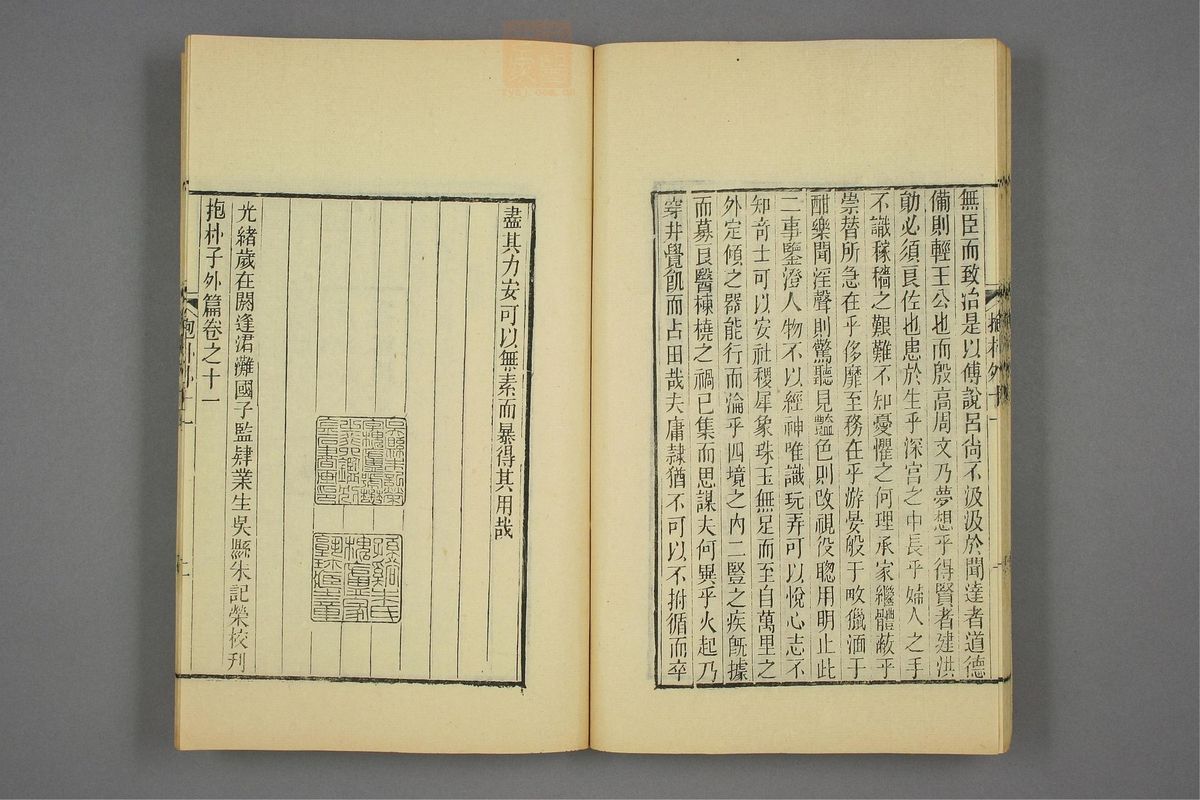 無臣而致治是以傅說呂尚不汲汲於聞達者道德
備則輕王公也而殷高周文乃夢想乎得賢者建洪
勛必須良佐也患於生乎深宮之中長乎婦人之手
不識稼穡之艱難不知憂懼之何理承家繼體蔽乎
崇替所急在乎侈靡至務在乎游晏般于畋獵湎于
酣樂聞淫聲則驚聽見豔色則改視役聰用明止此
二事鑒澄人物不以經神唯識玩弄可以悅心志不
知奇士可以安社稷犀象珠玉無足而至自萬里之
外定傾之器能行而淪乎四境之內二豎之疾旣據
而募良醫棟橈之禍已集而思謀夫何異乎火起乃
穿井覺飢而占田哉夫庸隸猶不可以不拊循而卒
抱朴外十一
盡其力安可以無素而暴得其用哉
光緒歲在閼逢涒灘國子監肄業生吳縣朱記榮校刊
抱朴子外篇卷之十一